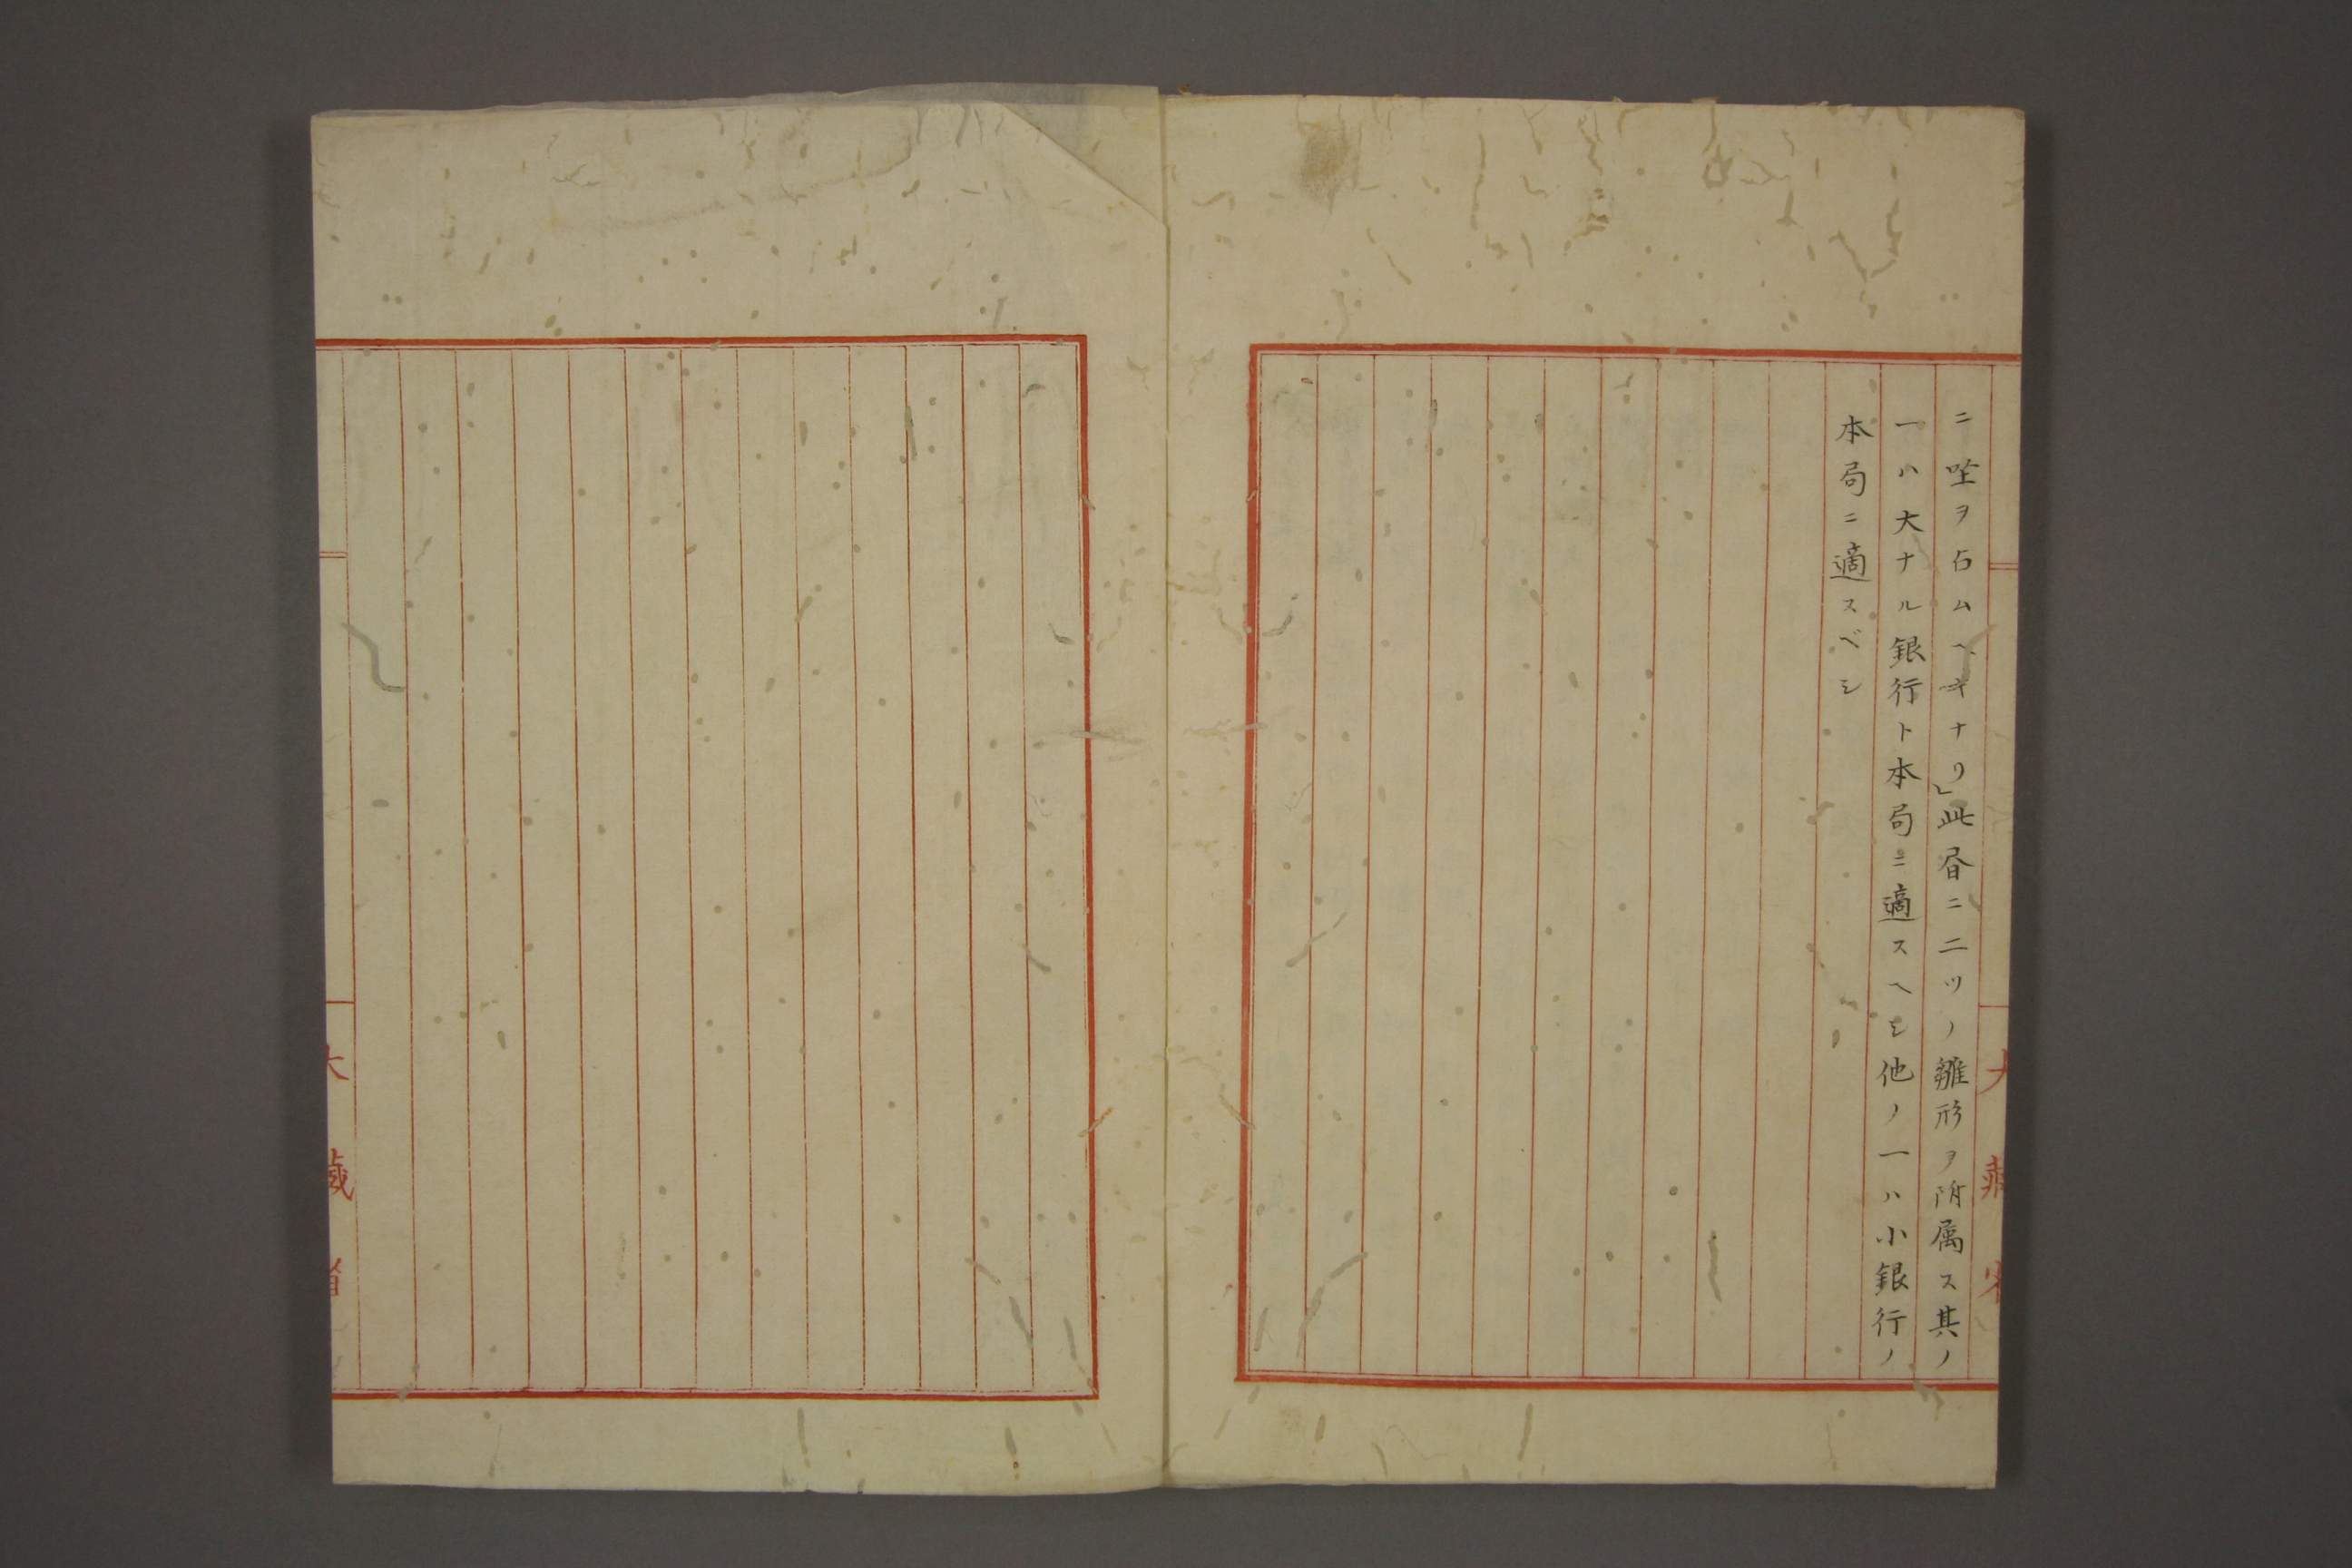 ニ坐ヲ占ムヘキナリ」此書ニ二ツノ雛形ヲ附属ス其ノ
一ハ大ナル銀行ト本局ニ適スヘシ他ノ一ハ小銀行ノ
本局ニ適スベシ
大藏省